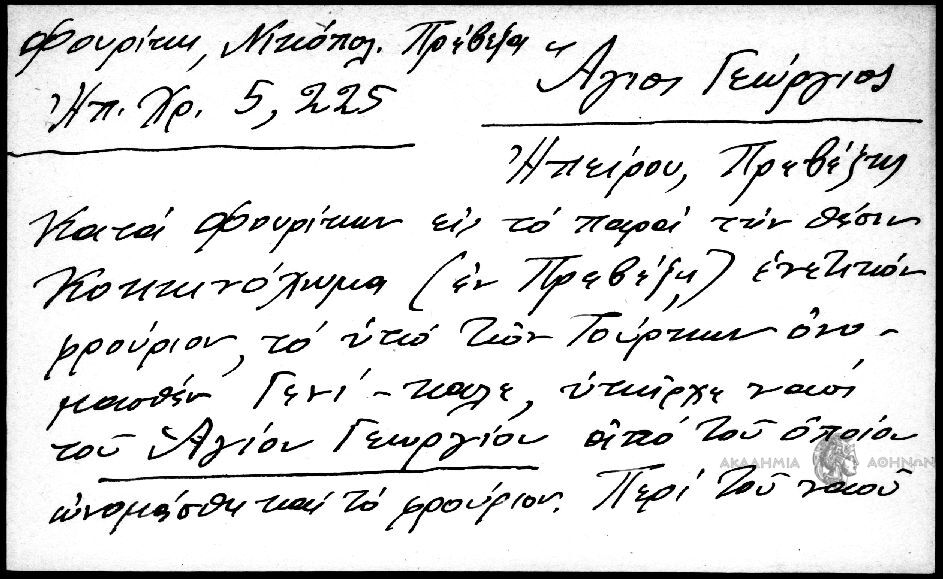 Φουρίκη, Νικόπολ. Πρέβεζα
Ἠπ. Χρ. 5, 225
Ἅγιος Γεώργιος
Ἠπείρου, Πρεβέζης
Κατά Φουρίκην εἰς τό παρά τήν θέσιν
Κοκκινόχωμα (ἐν Πρεβέζῃ) ἐνετικόν
φρούριον, τό ὑπό τῶν Τούρκων ὀνο-
μασθέν Γενί-καλε, ὑπῆρχε ναός
τοῦ Ἁγίου Γεωργίου ἀπό τοῦ ὁποίου
ὠνομάσθη καί τό φρούριον. Περί τοῦ ναοῦ
ΑΚΑΔΗΜΙΑ ΑΘΗΝΩΝ